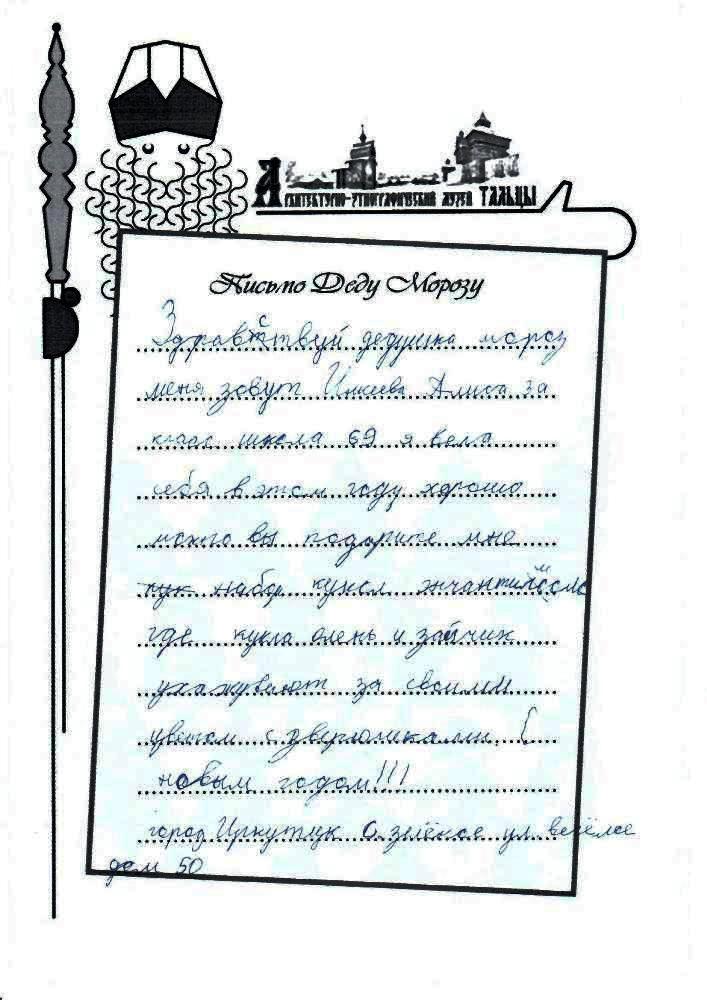 Архитектурно-этнографический музей ТАЛЬЦЫ
Письмо Деду Морозу
Здравствуй дедушка мороз
меня зовут Алиса 3а
класс школа 69 я вела
себя в этом году хорошо
можно вы подарите мне
набор кукол
где кукла олень и зайчик
ухаживают за своими
цветом с зверюшками. С
новым годом!!!
город Иркутцк ул. весёлое
дом 50